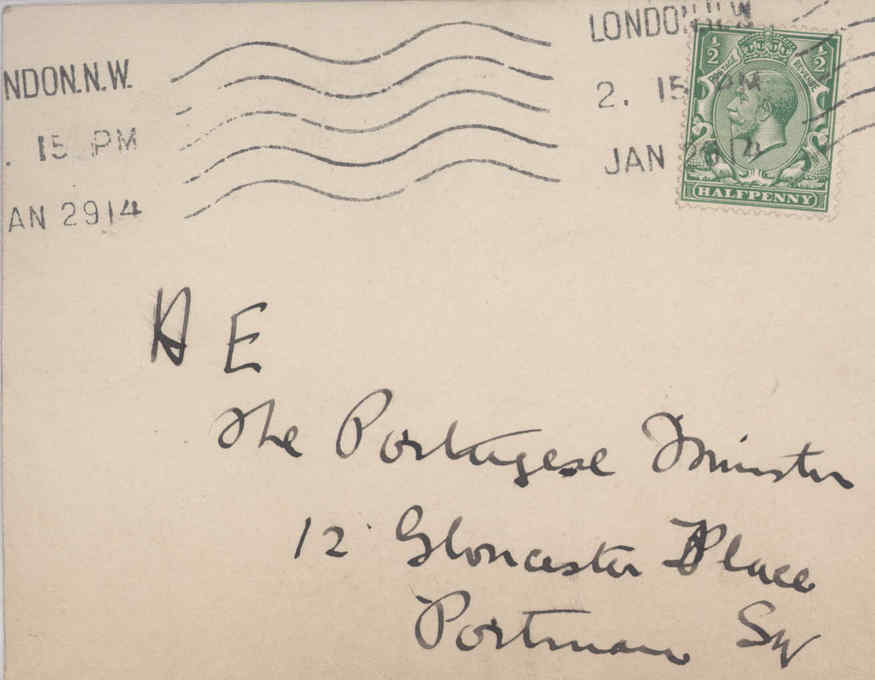 LONDON.N.W.
NDON.N.W.
2. 15 PM
. 15 PM
JAN
AN 29 14
1/2 1/2
POSTAGE REVENUE
HALFPENNY
H E
The Portugese Minister
12 Gloucester Place
Portman Sq